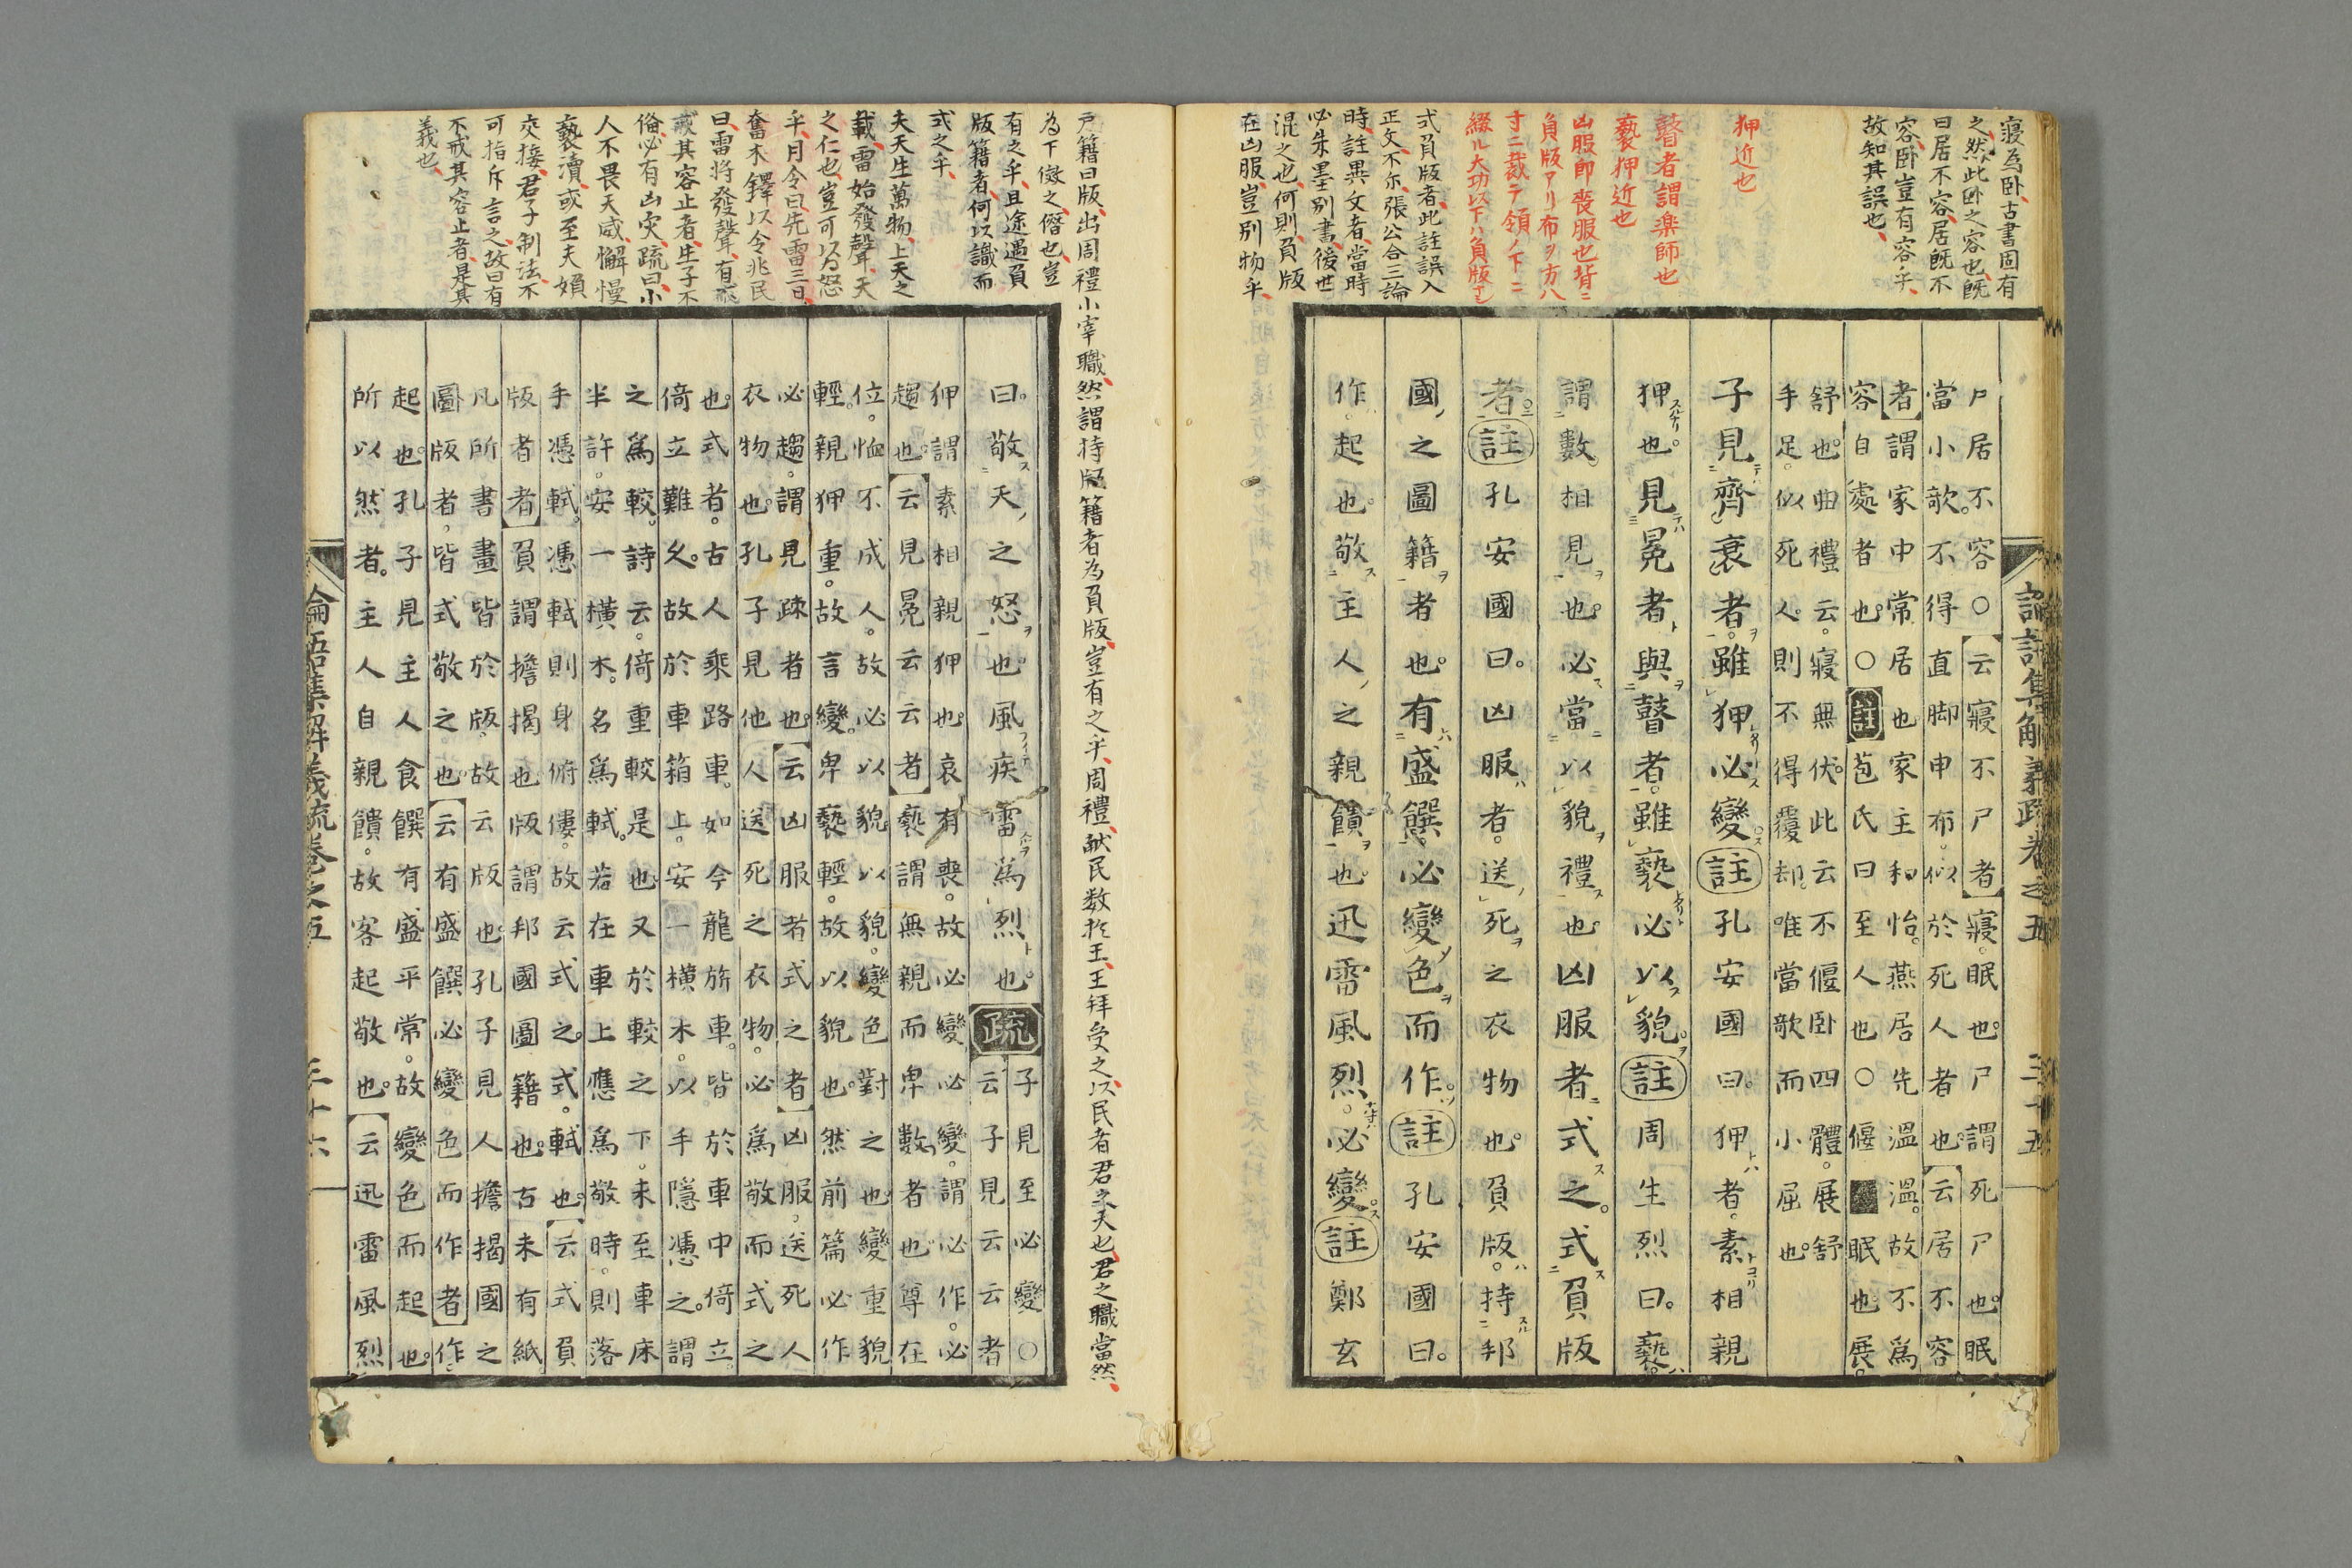 寢為卧、古書固有
之然、此卧之容也、既
曰居不容、居既不
容、卧豈有容乎、
故知其誤也、
狎近也
瞽者謂楽師也
褻狎近也
凶服即喪服也背ニ
負版アリ布ヲ方八
寸ニ裁テ領ノ下ニ
綴ル大功以下ハ負版ナシ
式負版者、此註誤入
正文、不尓、張公合三論
時、註異文者、當時
必朱墨別書、後世
混之也、何則、負版
在凶服、豈別物乎、
論語集解義疏卷之五
三十五
尸居不容○云寢不尸者寢眠也尸謂死尸也眠
當小欹不得直脚申布似於死人者也云居不容
者謂家中常居也家主和怡燕居先溫溫故不爲
容自處者也○註苞氏曰至人也○偃眠也展
舒也曲禮云寢無伏此云不偃卧四體展舒
手足似死人則不得覆却唯當欹而小屈也
子見齊衰者雖狎必變註孔安國曰狎者素相親
狎也見冕者與瞽者雖褻必以貌註周生烈曰褻
謂數相見也必當以貌禮也凶服者式之式負版
者註孔安國曰凶服者送死之衣物也負版持邦
國之圖籍者也有盛饌必變色而作註孔安國曰
作起也敬主人之親饋也迅雷風烈必變註鄭玄
戸籍曰版、出周禮小宰職、然謂持版籍者為負版、豈有之乎、周禮、献民数於王、王拜受之、以民者君之天也、君之職當然、
為下傚之、僭也、豈
有之乎、且途遇負
版籍者、何以識而
式之乎、
夫天生萬物、上天之
載、雷始發聲、天
之仁也、豈可以為怒
乎、月令曰、先雷三日、
奮木鐸以令兆民
曰、雷將發聲、有不
戒其容止者、生子不
僃、必有凶灾、疏曰、小
人不畏天威、懈慢
褻瀆、或至夫婦
交接、君子制法、不
可指斥言之、故曰有
不戒其容止者、是其
義也、
曰敬天之怒也風疾雷爲烈也疏子見至必變○
云子見云云者
狎謂素相親狎也衰有喪故必變必變謂必作必
趨也云見冕云云者褻謂無親而卑數者也尊在
位恤不成人故必以貌以貌變色對之也變重貌
輕親狎重故言變卑褻輕故以貌也然前篇必作
必趨謂見疎者也云凶服者式之者凶服送死人
衣物也孔子見他人送死之衣物必爲敬而式之
也式者古人乘路車如今龍旂車皆於車中倚立
倚立難久故於車箱上安一橫木以手隱憑之謂
之爲較詩云倚重較是也又於較之下未至車床
半許安一橫木名爲軾若在車上應爲敬時則落
手憑軾憑軾則身俯僂故云式之式軾也云式負
版者者負謂擔揭也版謂邦國圖籍也古未有紙
凡所書畫皆於版故云版也孔子見人擔揭國之
圖版者皆式敬之也云有盛饌必變色而作者作
起也孔子見主人食饌有盛平常故變色而起也
所以然者主人自親饋故客起敬也云迅雷風烈
論語集解義疏卷之五
三十六